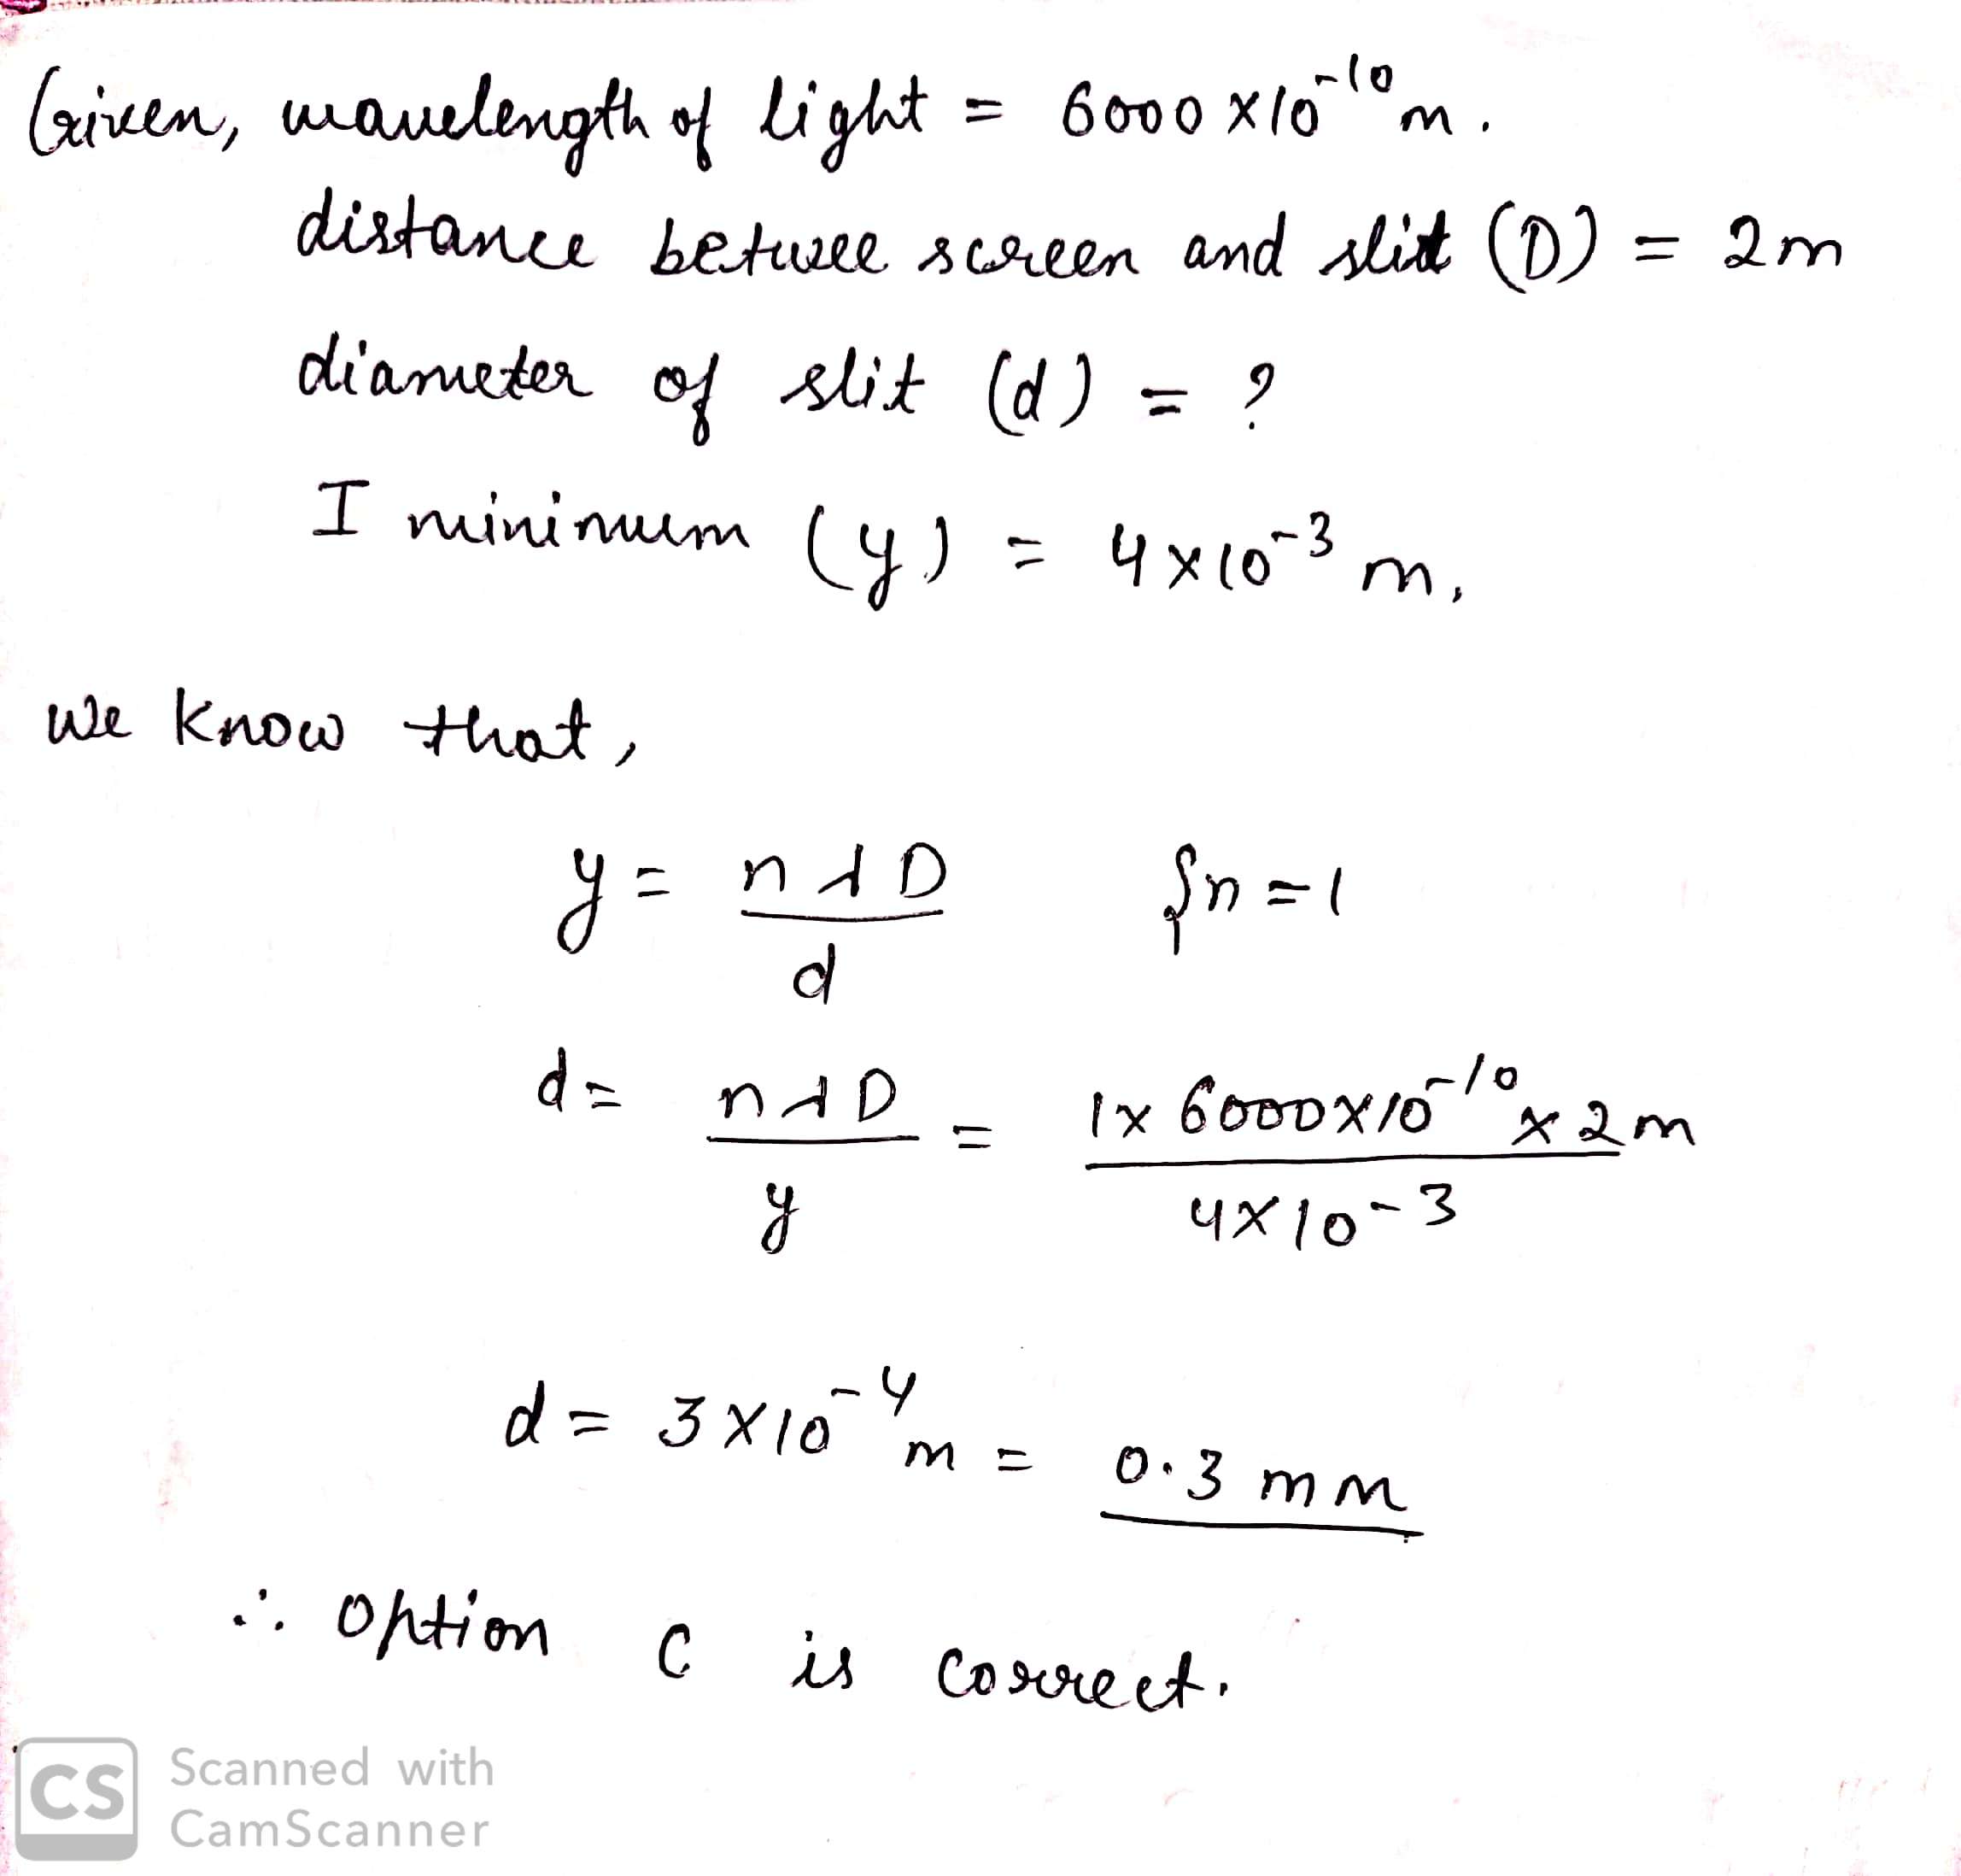 Given, wavelength of light = 6000 x 10⁻¹⁰ m.
distance betwee screen and slit (D) = 2m
diameter of slit (d) = ?
I minimum (y) = 4x10⁻³ m,
we know that,
y = nλD / d {n = 1
d = nλD / y = 1x 6000x10⁻¹⁰ x 2m / 4x10-3
d = 3x10⁻⁴ m = 0.3 mm
∴ Option C is correct.
CS Scanned with
CamScanner